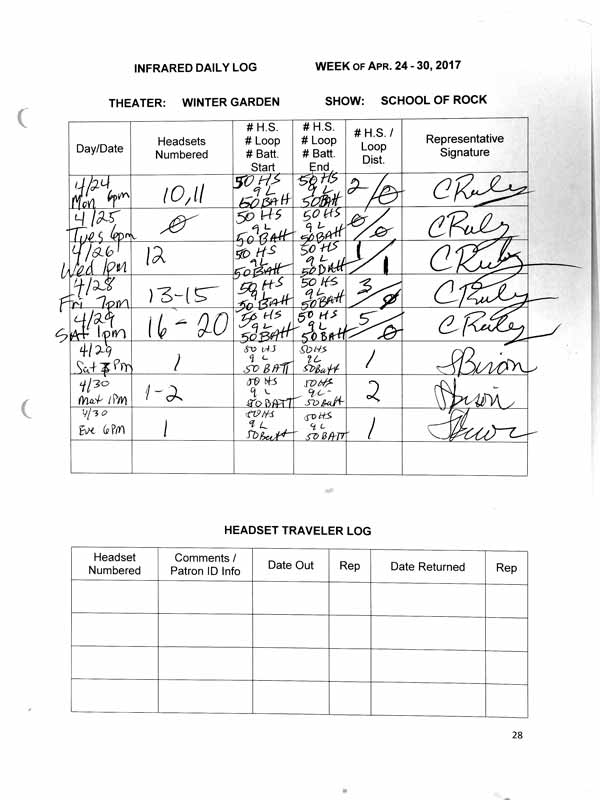 INFRARED DAILY LOG WEEK OF APR. 24 - 30, 2017
THEATER: WINTER GARDEN SHOW: SCHOOL OF ROCK
Day/Date Headsets Numbered # H.S. # Loop # Batt. Start # H.S. # Loop # Batt. End # H.S. / Loop Dist. Representative Signature
4/24 Mon 6pm 10,11 50 HS 9 L 50 BATT 50 HS 9 L 50 BATT 2/0 CRuley
4/25 Tues 6pm 0 50 HS 9 L 50 BATT 50 HS 9 L 50 BATT 0/0 CRuley
4/26 Wed 1pm 12 50 HS 9 L 50 BATT 50 HS 9 L 50 BATT 1/1 CRuley
4/28 Fri 7pm 13-15 50 HS 9 L 50 BATT 50 HS 9 L 50 BATT 3/0 CRuley
4/29 SAT 1pm 16-20 50 HS 9 L 50 BATT 50 HS 9 L 50 BATT 5/0 CRuley
4/29 Sat Pm 1 50 HS 9 L 50 BATT 50 HS 9 L 50 BATT 1
4/30 Mat 1PM 1-2 50 HS 9 L 50 BATT 50 HS 9 L 50 Batt 2
4/30 Eve 6PM 1 50 HS 9 L 50 Batt 50 HS 9 L 50 BATT 1
HEADSET TRAVELER LOG
Headset Numbered Comments / Patron ID Info Date Out Rep Date Returned Rep
28